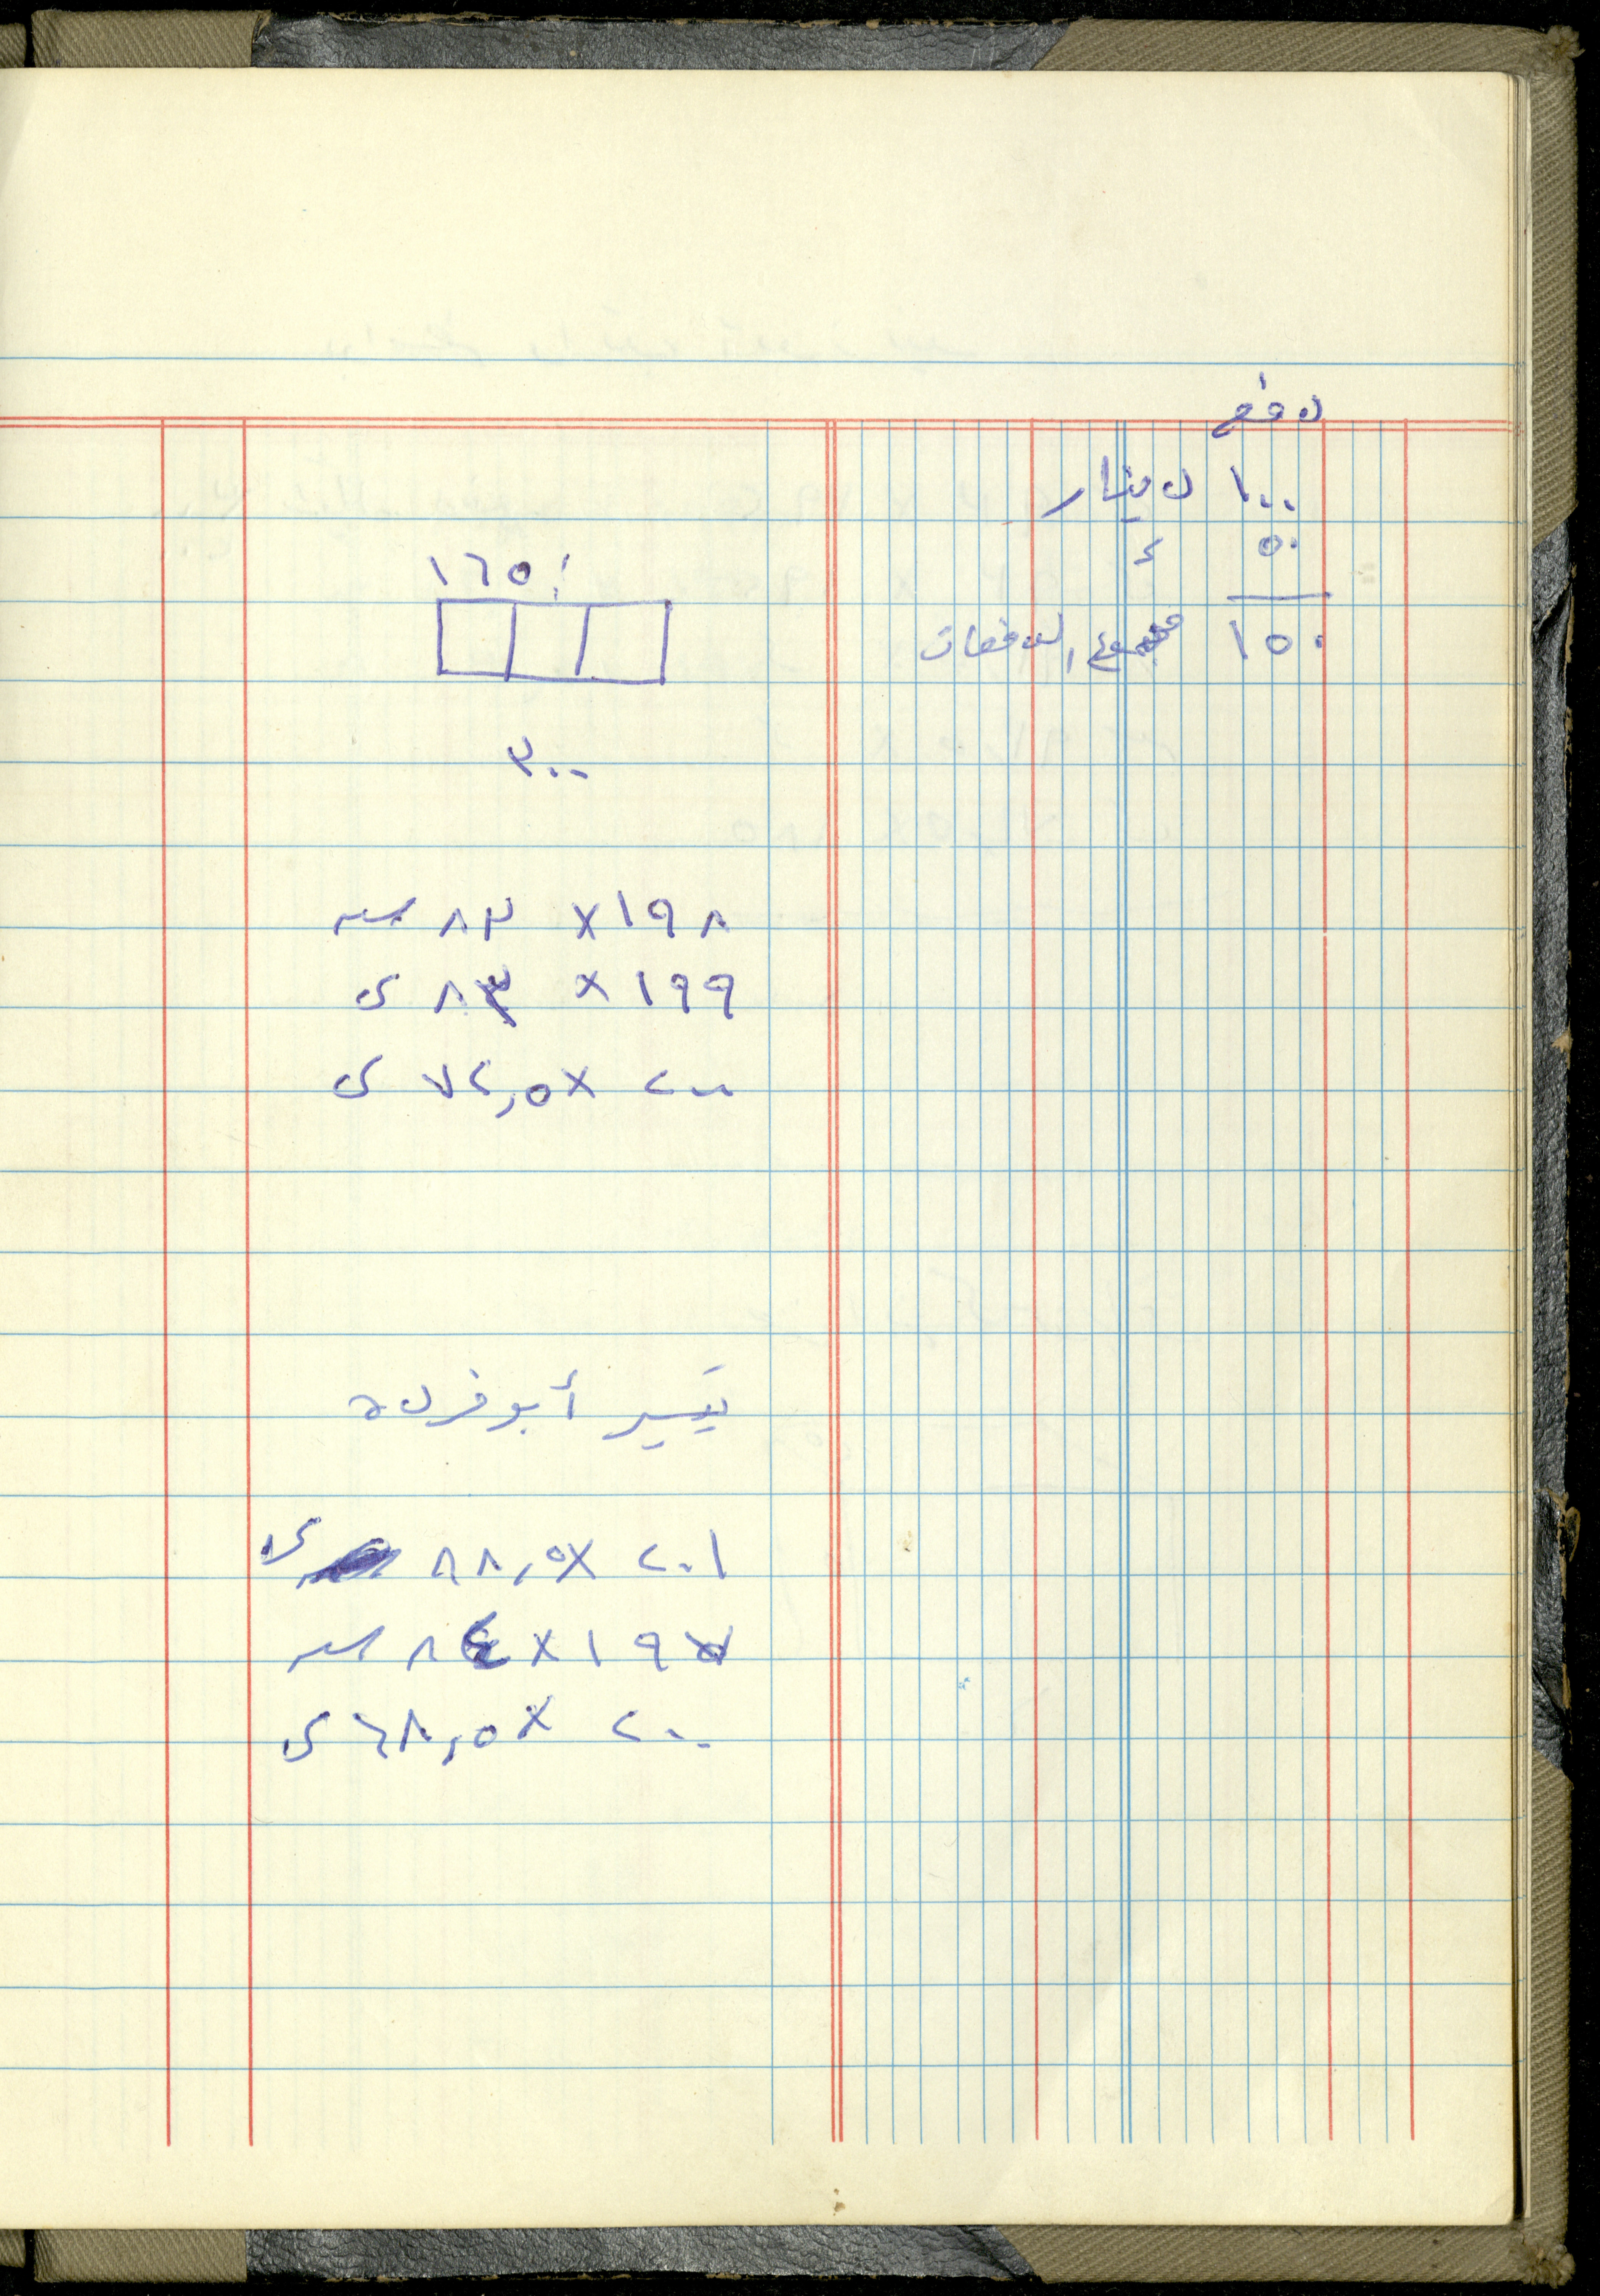 دفع
١٠٠ دينار
٥٠ د
١٥٠ مجموع الدفعات
١٦٥
٣٠٠
١٩٨ × ٨٣
١٩٩ × ٨٣ ى
٢٠٠ × ٧٢,٥ ى
تيسير أبو فرده
٢٠١ × ٨٨,٥ ى
١٩٧ × ٨٤
٢٠٠ × ٦٨,٥ ى